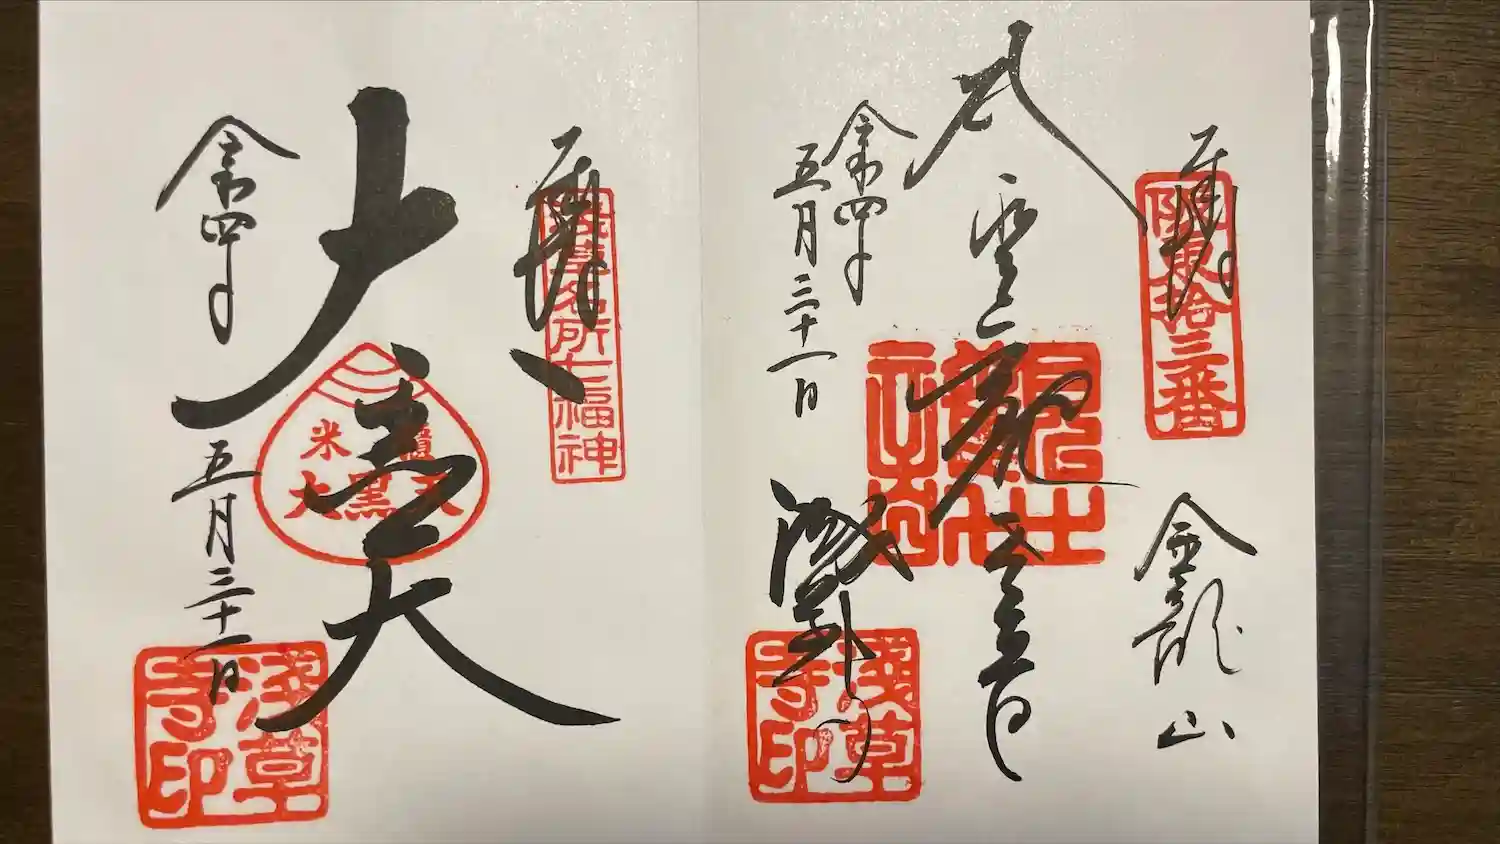 奉拝
阪東拾三番
金龍山
聖観世音
浅草寺
令和四年
五月三十一日
淺草寺印
奉拝
浅草名所七福神
大黒天
米櫃
大黒天
令和四年
五月三十一日
淺草寺印